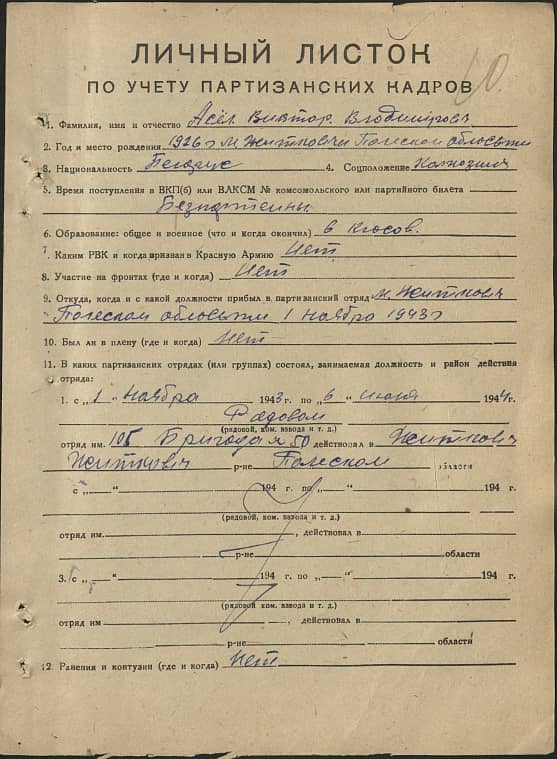 ЛИЧНЫЙ ЛИСТОК
ПО УЧЕТУ ПАРТИЗАНСКИХ КАДРОВ
1. Фамилия, имя и отчество Виктор Владимирович
2. Год и место рождения 1926 г м. Житковичи Полеской области
3. Национальность Белорус 4. Соцположение
5. Время поступления в ВКП(б) или ВЛКСМ № комсомольского или партийного билета
6. Образование: общее и военное (что и когда окончил) 6 класов.
7. Каким РВК и когда призван в Красную Армию Нет
8. Участие на фронтах (где и когда) Нет
9. Откуда, когда и с какой должности прибыл в партизанский отряд м. Житкович
Полеском области 1 ноября 1943 г
10. Был ли в плену (где и когда) Нет
11. В каких партизанских отрядах (или группах) состоял, занимаемая должность и район действия
отряда:
1. с „1" ноября 1943 г. по „6" июня 1944 г.
Рядовом
(рядовой, ком. взвода и т. д.)
отряд им. 101 Бригада 50 действовал в Житкович
Житкович р-не Полеском области
с „ " 194 г. по „ " 194 г.
(рядовой, ком. взвода и т. д.)
отряд им. , действовал в
р-не области
3. с „ " 194 г. по „ " 194 г.
(рядовой ком. взвода и т. д.)
отряд им , действовал в
р-не области
12. Ранения и контузии (где и когда) Нет